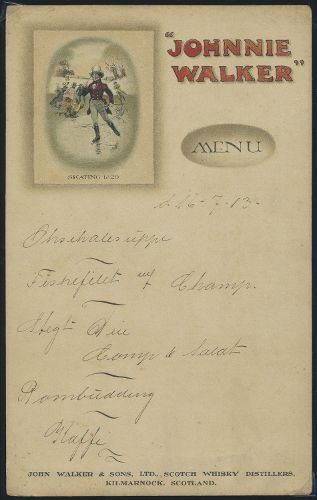 "JOHNNIE
WALKER"
SKATING 1820
MENU
d. 16-7-13.
Oksehalesuppe
Fiskefilet m/ Champ.
Stegt Due
Comp & Salat
Rombudding
Kaffe
JOHN WALKER & SONS, LTD., SCOTCH WHISKY DISTILLERS,
KILMARNOCK, SCOTLAND.